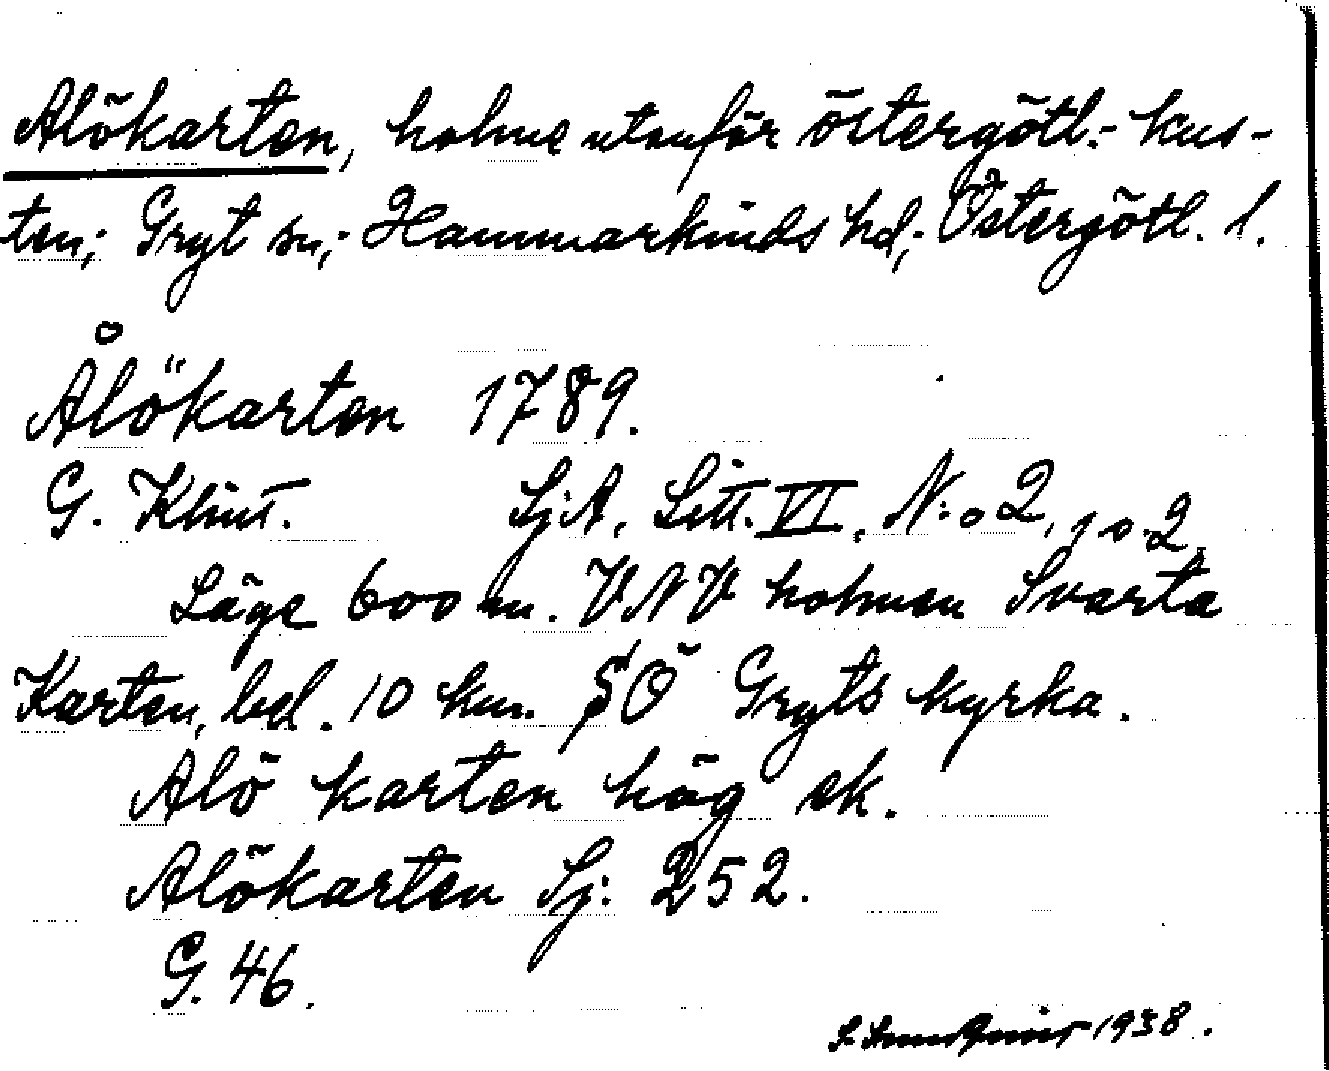 Alökarten, holme utanför östergötl.- kus-
ten; Gryt sn; Hammarkinds hd; Östergötl. l.
Ålökarten 1789.
G. Klint. SjA, Litt. VI, N:o 2,
Läge 600 m. VNV holmen Svarta
Karten, bel. 10 km. SÖ Gryts kyrka.
Alö karten häg ek.
Alökarten Sj: 252.
G. 46.
1938.